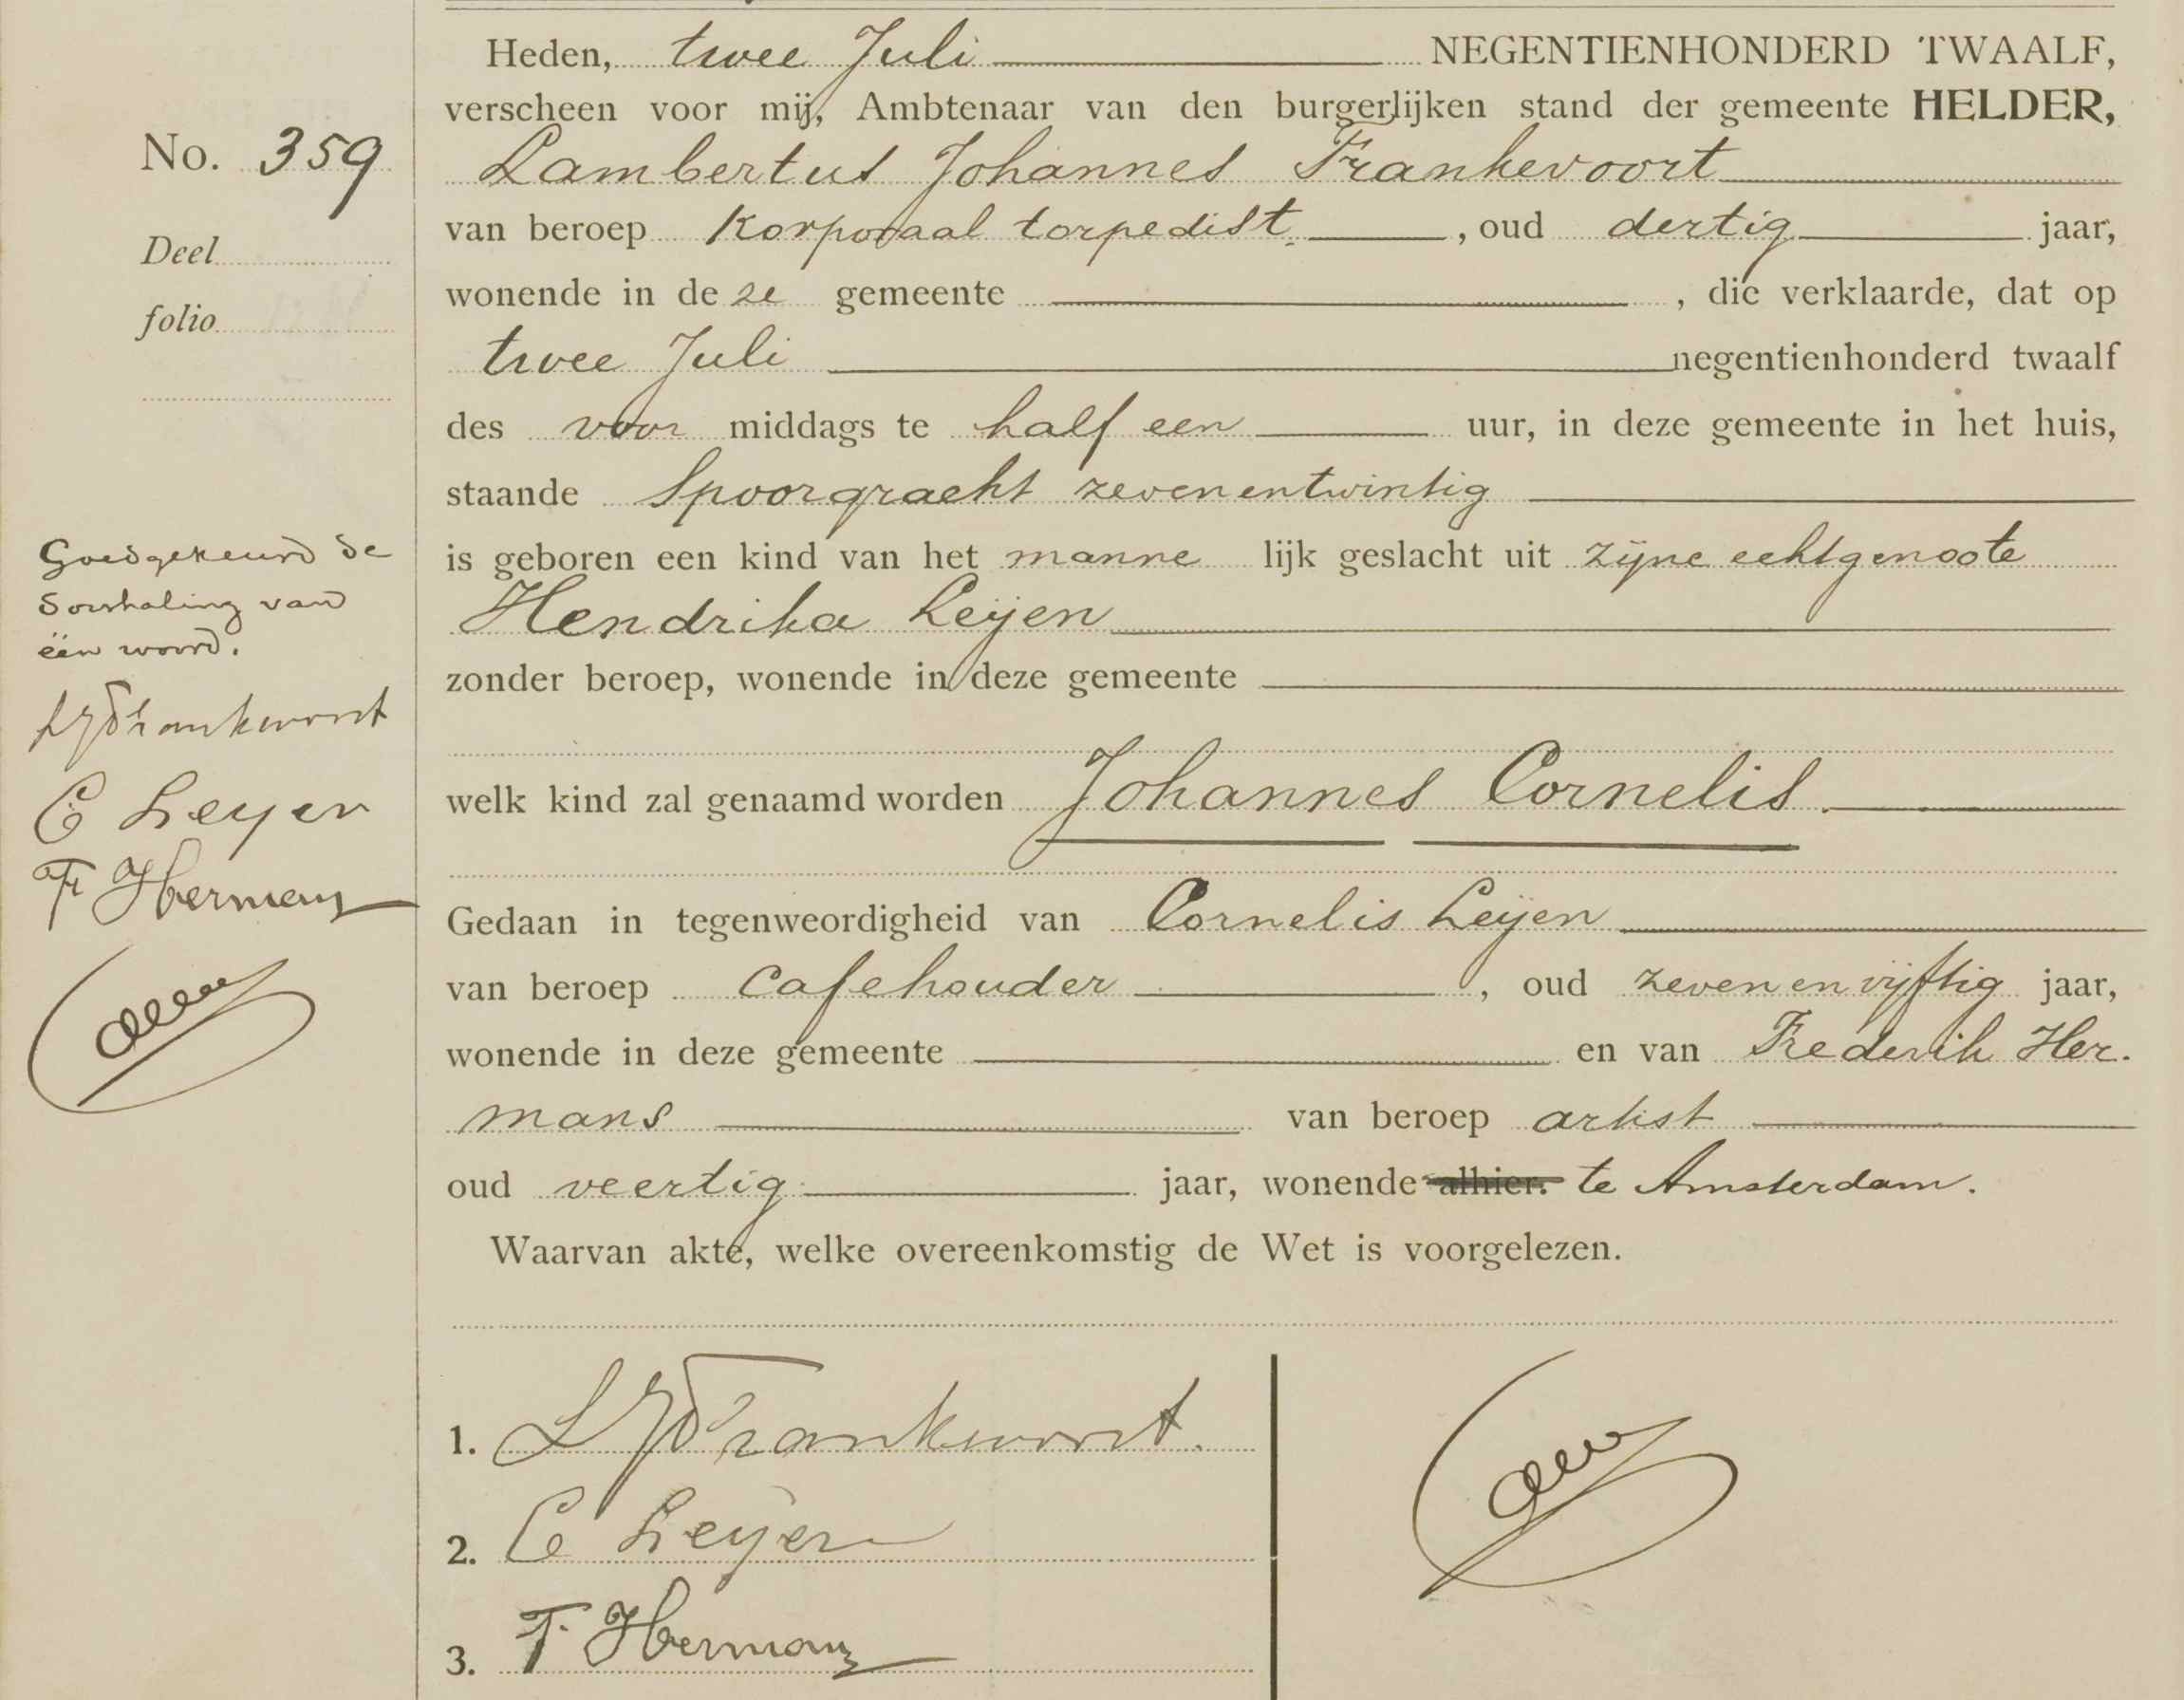 Heden, twee Juli NEGENTIENHONDERD TWAALF,
verscheen voor mij, Ambtenaar van den burgerlijken stand der gemeente HELDER,
No. 359
Lambertus Johannes Frankevoort
van beroep Korporaal torpedist, oud dertig jaar,
Deel
wonende in deze gemeente , die verklaarde, dat op
folio
twee Juli negentienhonderd twaalf
des voor middags te half een uur, in deze gemeente in het huis,
staande Spoorgracht zevenentwintig
is geboren een kind van het mannelijk geslacht uit zijne echtgenoote
Hendrika Leijen
zonder beroep, wonende in deze gemeente
welk kind zal genaamd worden Johannes Cornelis.
Gedaan in tegenweordigheid van Cornelis Leijen
van beroep Cafehouder, oud zevenenvijftig jaar,
wonende in deze gemeente en van Frederik Her.
mans van beroep artist
oud veertig jaar, wonende alhier. te Amsterdam.
Waarvan akte, welke overeenkomstig de Wet is voorgelezen.
Goedgekeurd de
doorhaling van
één woord.
LJFrankevoort
C Leyen
F Hermans
1. LJFrankevoort.
2. C Leyen
3. F. Hermans